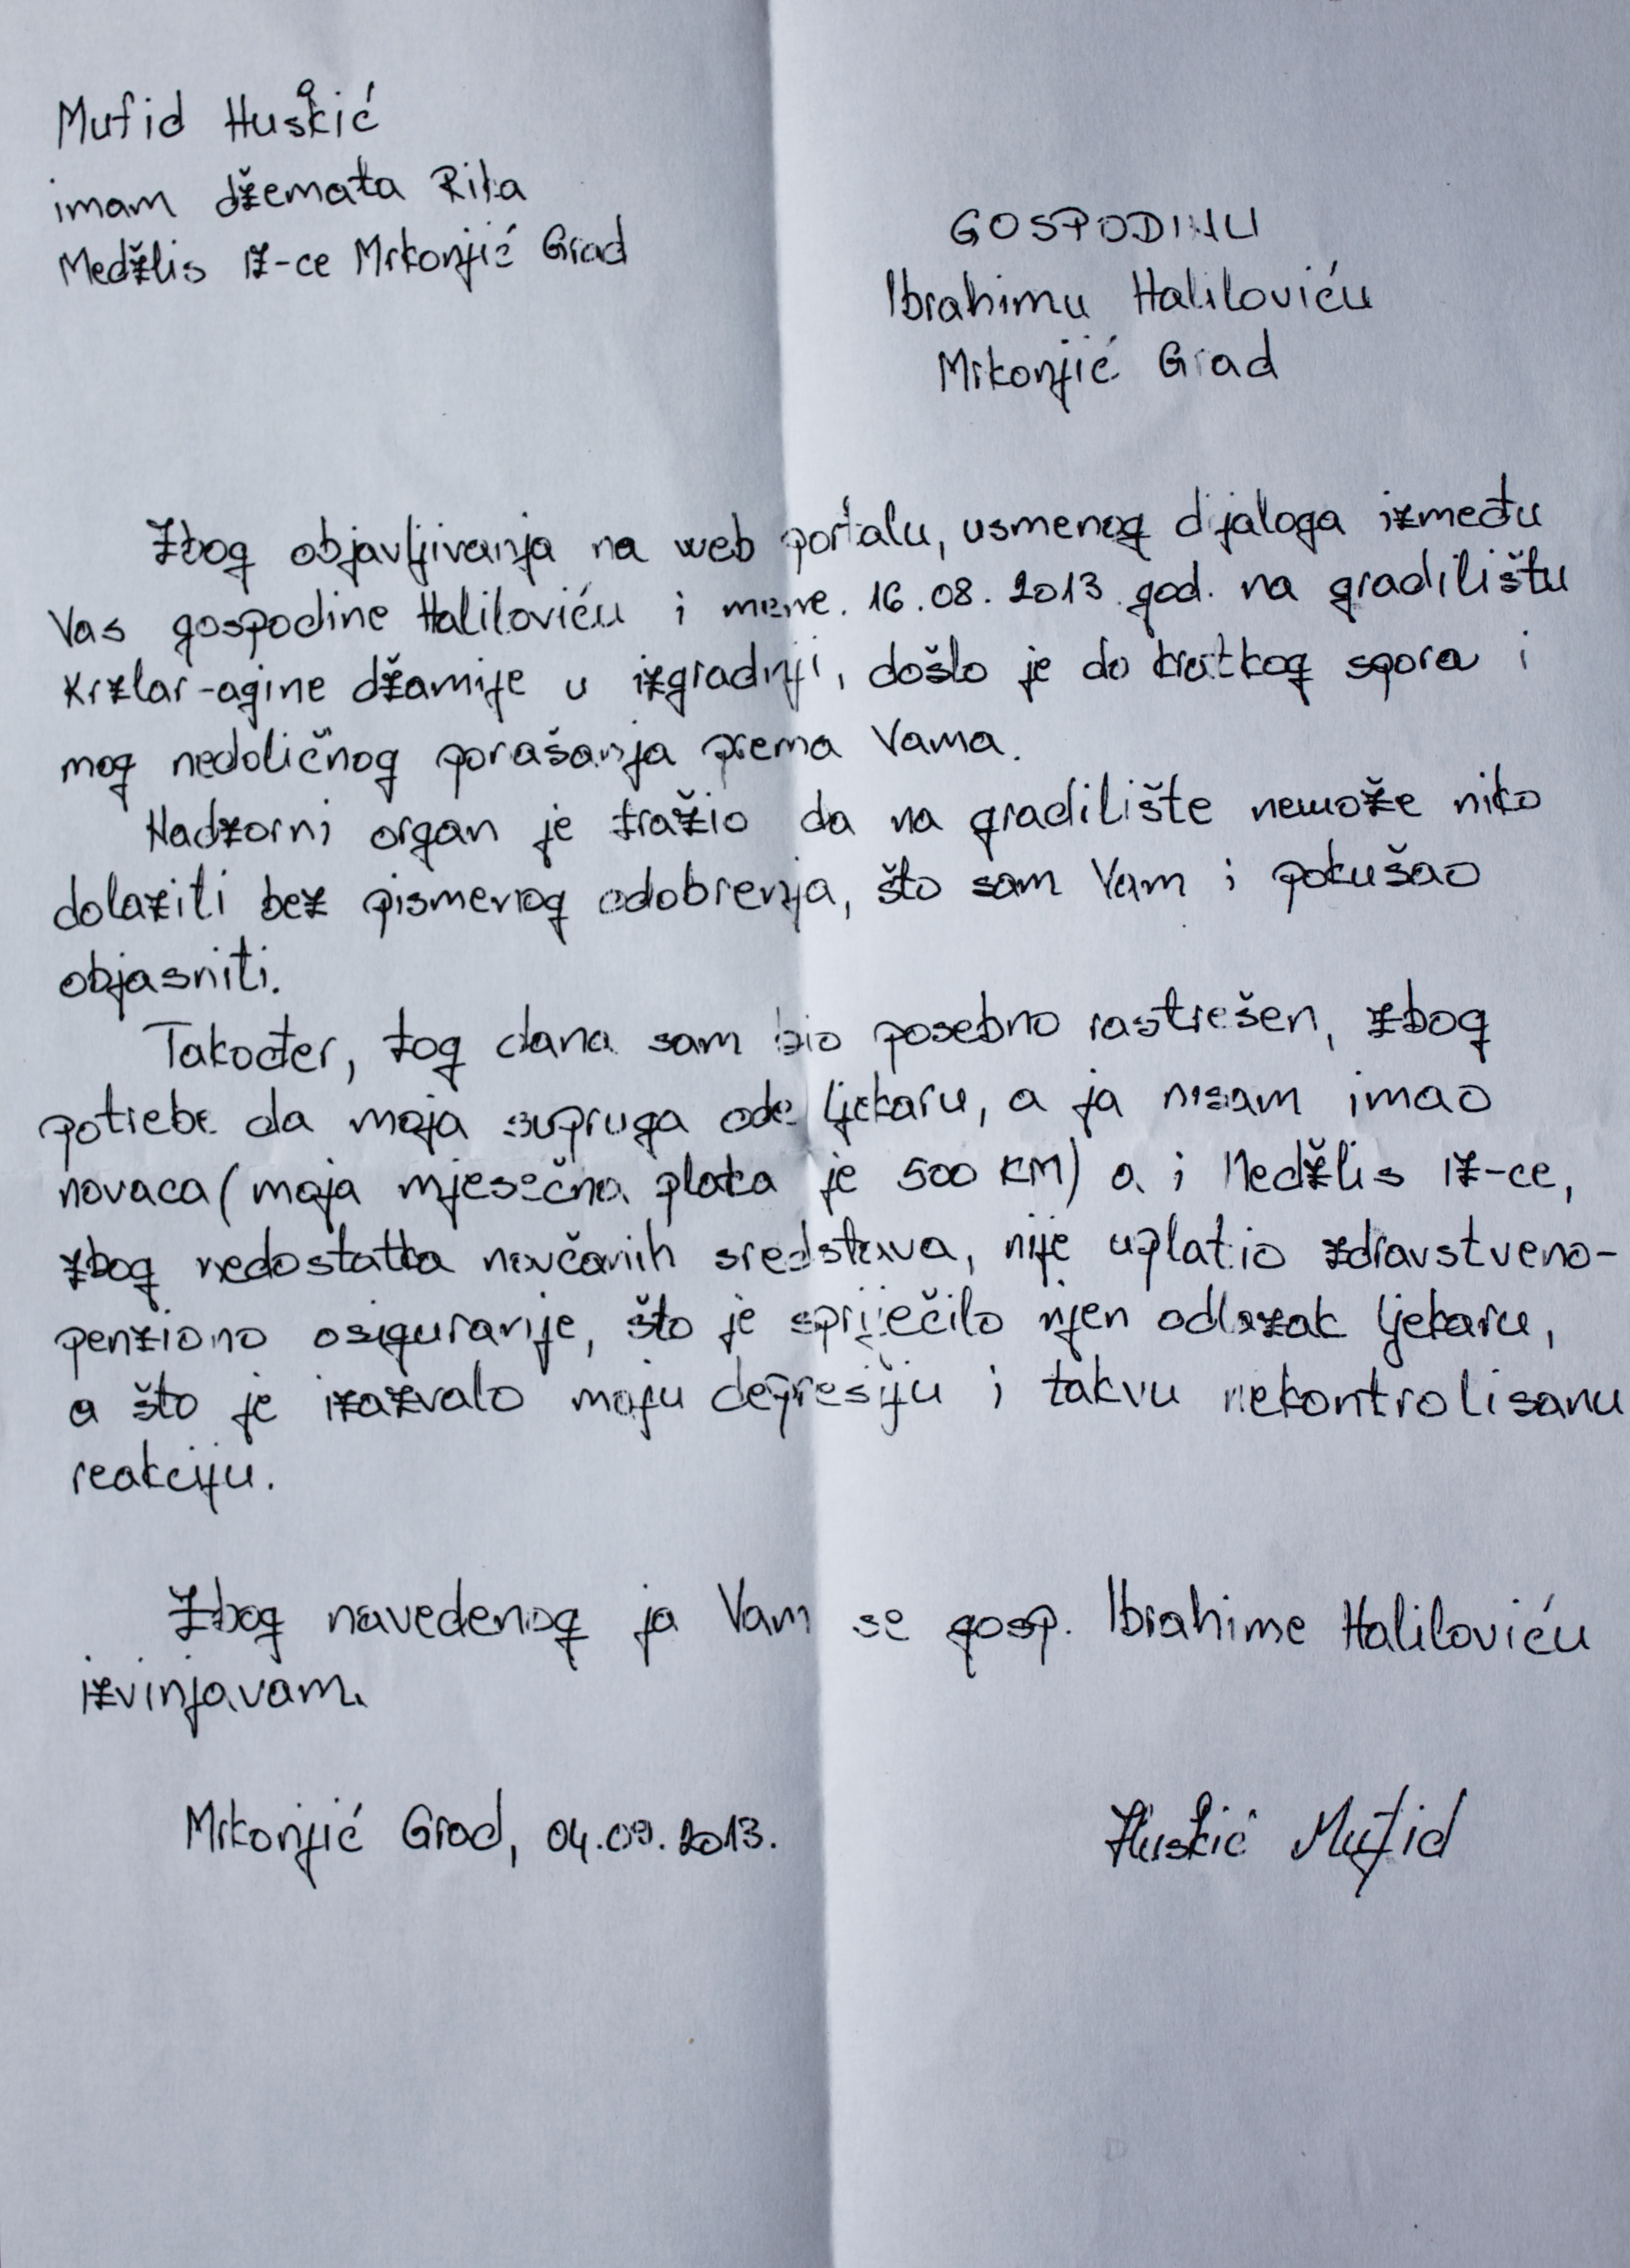 Mufid Huskić
imam džemata Rika
Medžlis IZ-ce Mrkonjić Grad
GOSPODINU
Ibrahimu Haliloviću
Mrkonjić Grad
Zbog objavljivanja na web portalu, usmenog dijaloga između
Vas gospodine Haliloviću i mene. 16.08.2013 god. na gradilištu
Krzlar-agine džamije u izgradnji, došlo je do kratkog spora i
mog nedoličnog porašanja prema Vama.
Nadzorni organ je tražio da na gradilište nemože niko
dolaziti bez pismenog odobrenja, što sam Vam i pokušao
objasniti.
Također, tog dana sam bio posebno rastrešen, zbog
potrebe da moja supruga ode ljekaru, a ja nisam imao
novaca (moja mjesečna plata je 500 KM) a i Medžlis IZ-ce,
zbog nedostatka novčanih sredstava, nije uplatio zdravstveno-
penziono osiguranje, što je spriječilo njen odlazak ljekaru,
a što je izazvalo moju depresiju i takvu nekontrolisanu
reakciju.
Zbog navedenog ja Vam se gosp. Ibrahime Haliloviću
izvinjavam.
Mrkonjić Grad, 04.09.2013.
Huskić Mufid